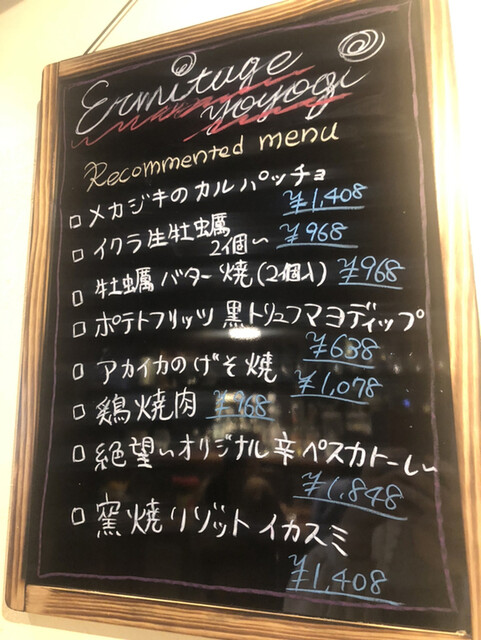 Ermitage
yoyogi
Recommented menu
□ メカジキのカルパッチョ
¥1,408
□ イクラ生牡蠣
2個〜 ¥968
□ 牡蠣バター焼(2個入) ¥968
□ ポテトフリッツ 黒トリュフマヨディップ
¥638
□ アカイカのげそ焼
¥1,078
□ 鶏焼肉 ¥768
□ 絶望〜オリジナル辛ペスカトーレ〜
¥1,848
□ 窯焼リゾットイカスミ
¥1,408